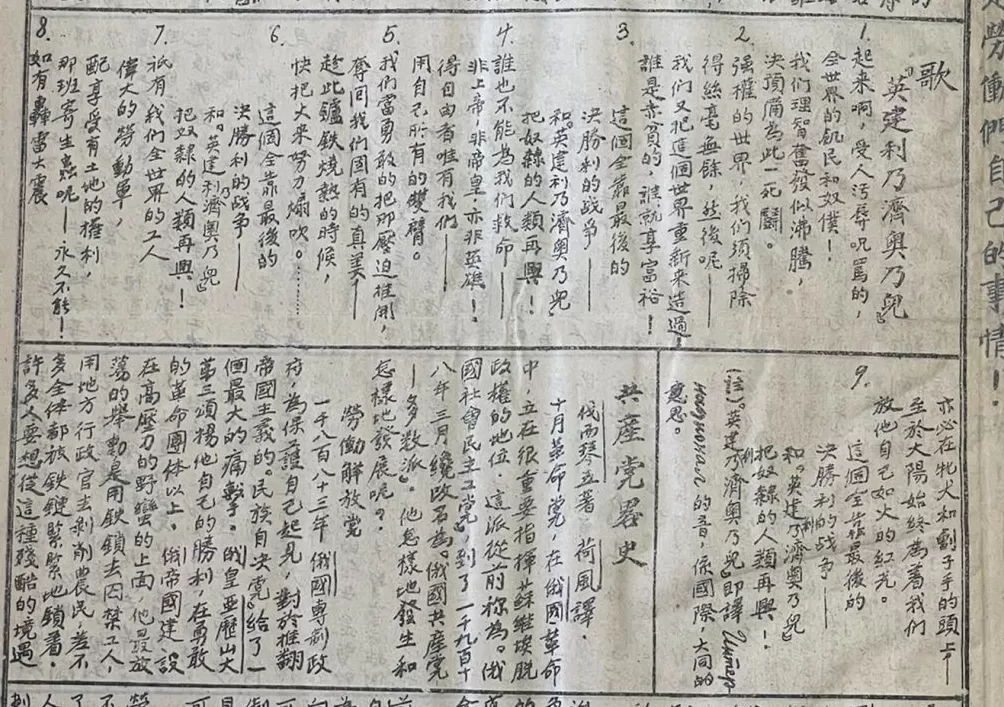 勞働們自己的事情！
歌
『英建利乃濟奧乃兒』
1. 起来啊，受人污辱咒罵的，
全世界的飢民和奴僕！
我們理智奮發似沸騰，
決預備為此一死鬪。
2. 强權的世界，我們須掃除
得絲毫無餘，然後呢——
我們又把這個世界重新来造過！
誰是赤貧的，誰就享富裕！
3. 這個全靠最後的
決勝利的战争——
和英建利乃濟奧乃兒
把奴隸的人類再興！
4. 誰也不能為我們救命——
非上帝非帝皇，亦非英雄！
得自由者惟有我們——
用自己所有的雙臂。
5. 我們當勇敢的把那壓迫推開，
奪回我們固有的真美——
趁此鑪鉄燒熟的時候，
快把火来努力煽吹。………
6. 這個全靠最後的
決勝利的战争——
和『英建利濟奧乃兒』
把奴隸的人類再興！
7. 祇有我們全世界的工人
偉大的勞動軍，
配享受有土地的權利，
那班寄生蟲呢——永久不能！
8. 如有轟雷大震
亦必在牝犬和劊子手的頭上——
至於太陽始終為着我們
放他自己如火的紅光。
9. 這個全靠最後的
決勝利的战争——
和『英建乃濟奧乃兒』
把奴隸的人類再興！
(註)『英建乃濟奧乃兒』即譯
的音，係國際，大同的
意思。
共産党畧史
伐而琴五著 荷風譯.
十月革命党，在俄國革命
中，立在很重要指揮苏维埃脱
政權的地位．這派從前祢為『俄
國社會民主工党』，到了一千九百十
八年三月纔改名為『俄國共産党
——多數派』。他怎樣地發生和
怎樣地發展呢？
勞働解放党
一千八百八十三年俄國專制政
府，為保護自己起見，對於推翻
帝國主義的『民族自决党』給了一
個最大的痛擊。俄皇亚歷山大
第三頌揚他自己的勝利，在勇敢
的革命團体以上。俄帝國建設
在高壓力的野蠻的上面他最放
蕩的舉動是用鉄鎖去囚禁工人，
用地方行政官去剝削農民，差不
多全体都被鉄鏈緊緊地鎖着．
許多人要想從這種残酷的境遇